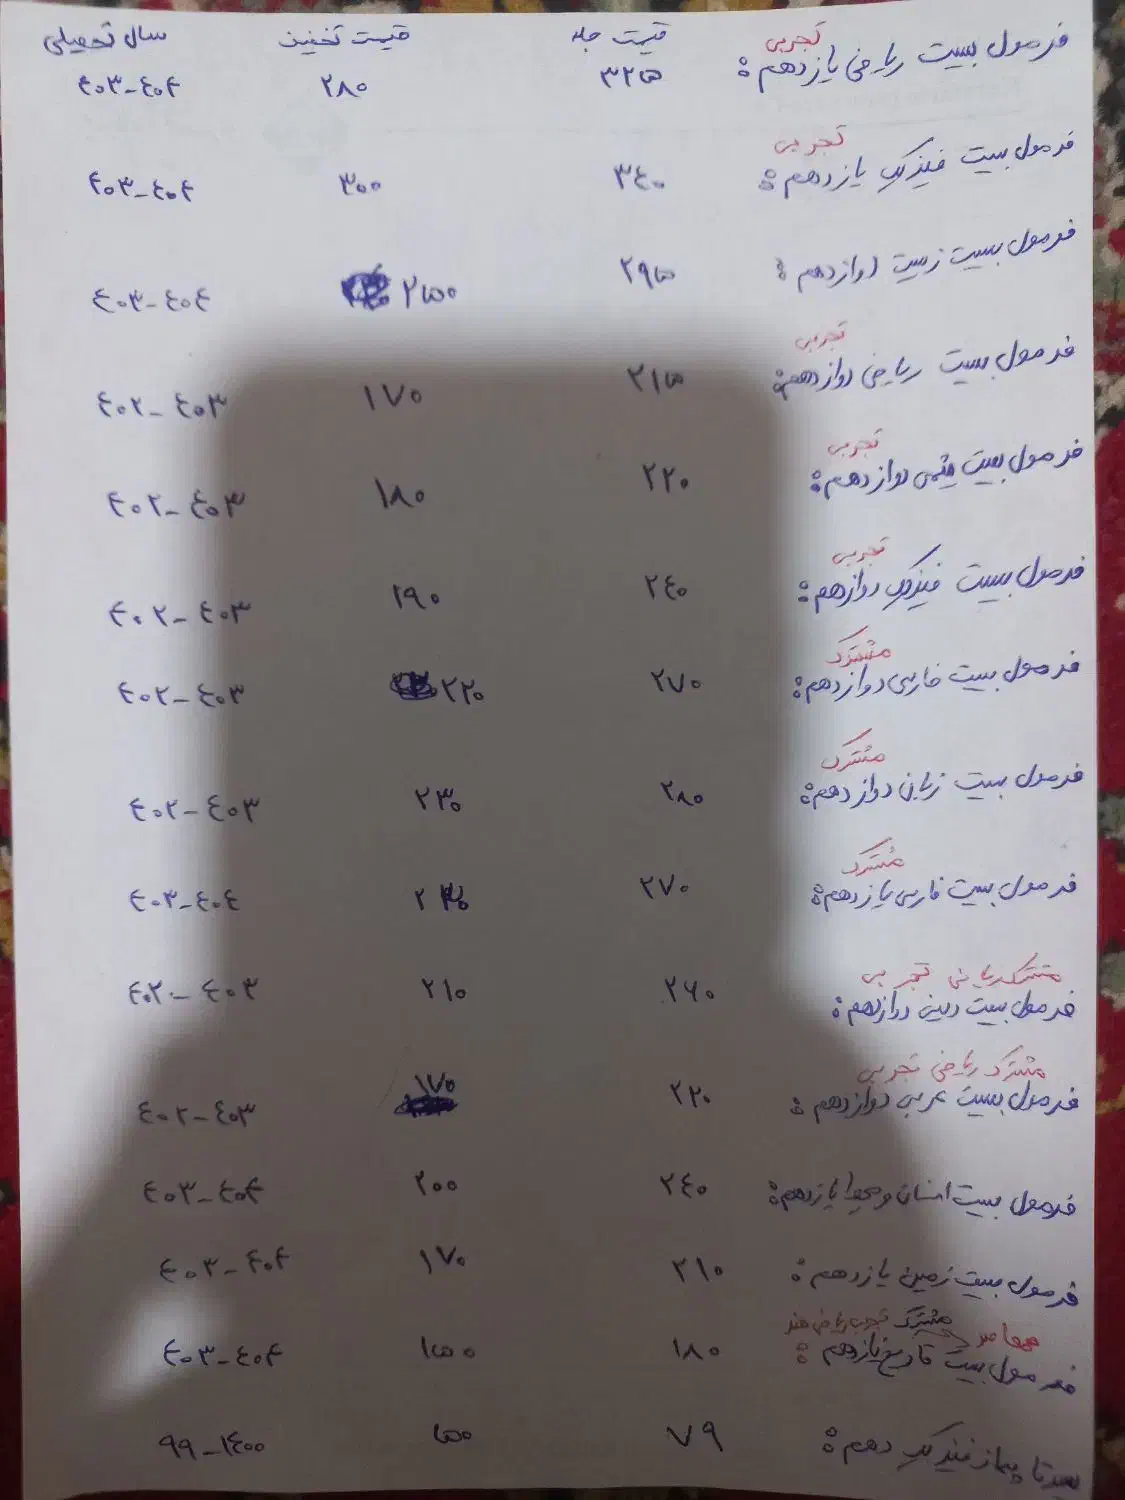 قیمت جلد قیمت تخفیف سال تحصیلی
تجربی
فرمول بیست ریاضی یازدهم: ۳۲۵ ۲۸۰ ۴۰۳-۴۰۴
تجربی
فرمول بیست فیزیک یازدهم: ۳۴۰ ۳۰۰ ۴۰۳-۴۰۴
فرمول بیست زیست دوازدهم: ۲۹۵ ۲۵۰ ۴۰۳-۴۰۴
تجربی
فرمول بیست ریاضی دوازدهم: ۲۱۵ ۱۷۰ ۴۰۲-۴۰۳
تجربی
فرمول بیست شیمی دوازدهم: ۲۲۰ ۱۸۰ ۴۰۲-۴۰۳
تجربی
فرمول بیست فیزیک دوازدهم: ۲۴۰ ۱۹۰ ۴۰۲-۴۰۳
مشترک
فرمول بیست فارسی دوازدهم: ۲۷۰ ۲۲۰ ۴۰۲-۴۰۳
مشترک
فرمول بیست زبان دوازدهم: ۲۸۰ ۲۳۰ ۴۰۲-۴۰۳
مشترک
فرمول بیست فارسی یازدهم: ۲۷۰ ۲۳۰ ۴۰۳-۴۰۴
مشترک ریاضی تجربی
فرمول بیست دینی دوازدهم: ۲۶۰ ۲۱۰ ۴۰۲-۴۰۳
مشترک ریاضی تجربی
فرمول بیست عربی دوازدهم: ۲۲۰ ۱۷۰ ۴۰۲-۴۰۳
فرمول بیست انسان و محیط یازدهم: ۲۴۰ ۲۰۰ ۴۰۳-۴۰۴
فرمول بیست زمین یازدهم: ۲۱۰ ۱۷۰ ۴۰۳-۴۰۴
معاصر مشترک تجربی ریاضی
فرمول بیست تاریخ یازدهم: ۱۸۰ ۱۵۰ ۴۰۳-۴۰۴
سیر تا پیاز فیزیک دهم: ۷۹ ۵۰ ۹۹-۱۴۰۰